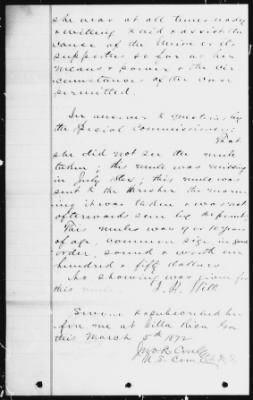 she was at all times ready
& willing to aid & assist the
cause of the Union or its
supporters so far as her
means & power & the cir
cumstances of the case
permitted.
In answer to questions by
the Special Commissioner:
That
she did not see the mule
taken; the mule was missing
in July 1864, this mule was
sent to the thrasher the morn
ing it was taken & was not
afterwards seen by deponent
This mule was 4 or 5 years
of age, common size, in good
order, sound & worth one
hundred & fifty dollars
No showing was given for
this mule. J. H. Hill
Sworn & subscribed be
fore me at Villa Rica Ga
this March 5th 1872
U.S. Com